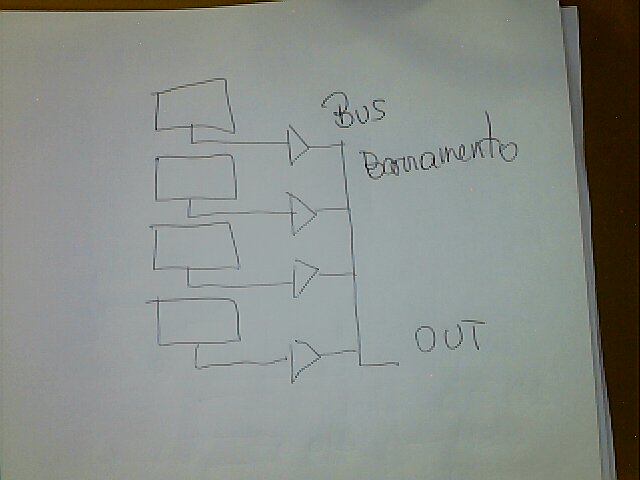 Bus
Barramento
OUT